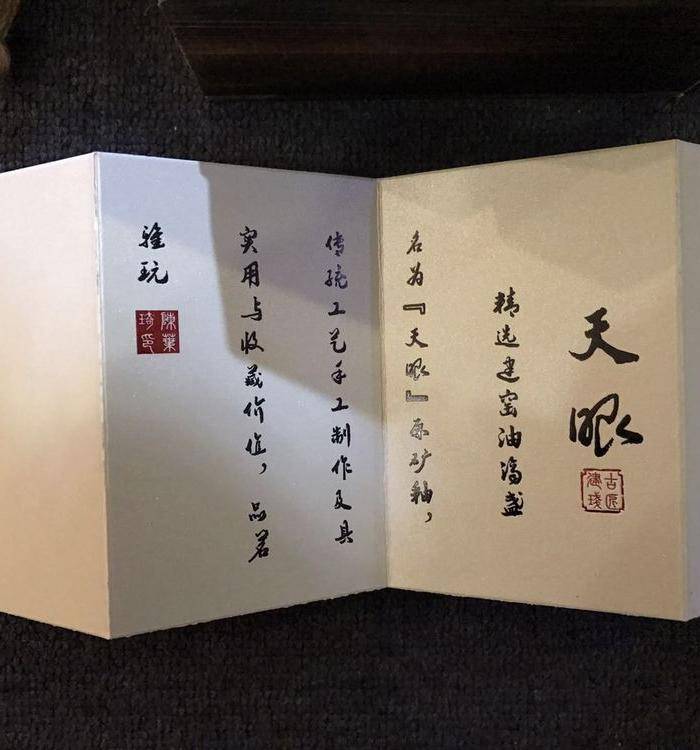 天眼
古匠
建琖
精选建窑油滴盏
名为『天眼』原矿釉，
传统工艺手工制作及具
实用与收藏价值，品茗
雅玩
陳葉
琦印